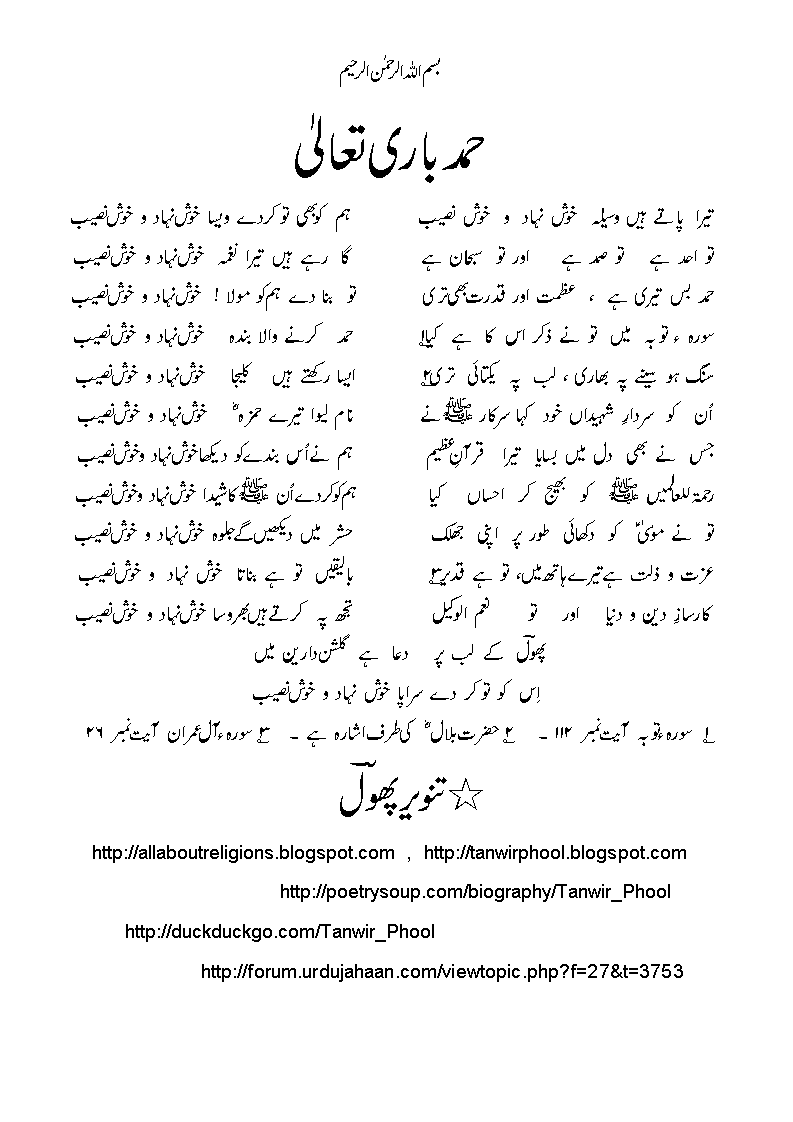 بسم اللہ الرحمٰن الرحیم
حمد باری تعالیٰ
تیرا پاتے ہیں وسیلہ خوش نہاد و خوش نصیب ہم کو بھی تو کردے ویسا خوش نہاد و خوش نصیب
تو احد ہے تو صمد ہے اور تو سبحان ہے گا رہے ہیں تیرا نغمہ خوش نہاد و خوش نصیب
حمد بس تیری ہے ، عظمت اور قدرت بھی تری تو بنا دے ہم کو مولا ! خوش نہاد و خوش نصیب
سورہ ء توبہ میں تو نے ذکر اس کا ہے کیا۱؎ حمد کرنے والا بندہ خوش نہاد و خوش نصیب
سنگ ہو سینے پہ بھاری ، لب پہ یکتائی تری۲؎ ایسا رکھتے ہیں کلیجا خوش نہاد و خوش نصیب
اُن کو سردارِ شہیداں خود کہا سرکار ﷺ نے نام لیوا تیرے حمزہ ؓ خوش نہاد و خوش نصیب
جس نے بھی دل میں بسایا تیرا قرآنِ عظیم ہم نے اُس بندے کو دیکھا خوش نہاد و خوش نصیب
رحمۃ للعالمیں ﷺ کو بھیج کر احساں کیا ہم کو کردے اُن ﷺ کا شیدا خوش نہاد و خوش نصیب
تو نے موسیٰ ؑ کو دکھائی طور پر اپنی جھلک حشر میں دیکھیں گے جلوہ خوش نہاد و خوش نصیب
عزت و ذلت ہے تیرے ہاتھ میں، تو ہے قدیر۳؎ بالیقیں تو ہے بناتا خوش نہاد و خوش نصیب
کارسازِ دین و دنیا اور تو نعم الوکیل تجھ پہ کرتے ہیں بھروسا خوش نہاد و خوش نصیب
پھولؔ کے لب پر دعا ہے گلشنِ دارین میں
اِس کو تو کر دے سراپا خوش نہاد و خوش نصیب
۱؎ سورہ ء توبہ آیت نمبر ۱۱۲ ۔ ۲؎ حضرت بلال ؓ کی طرف اشارہ ہے ۔ ۳؎ سورہ ء آل عمران آیت نمبر ۲۶
☆ تنویر پھولؔ
http://allaboutreligions.blogspot.com , http://tanwirphool.blogspot.com
http://poetrysoup.com/biography/Tanwir_Phool
http://duckduckgo.com/Tanwir_Phool
http://forum.urdujahaan.com/viewtopic.php?f=27&t=3753